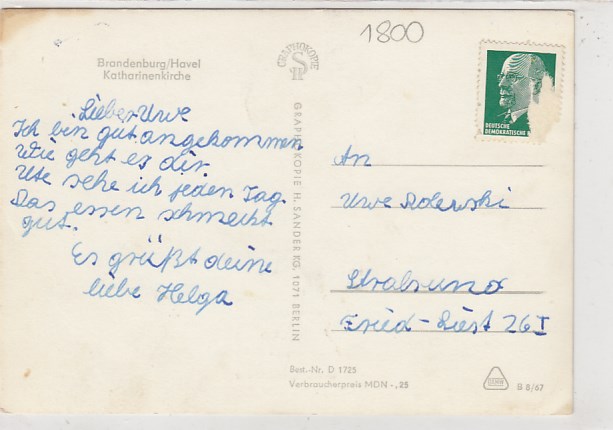 1800
Brandenburg/Havel
Katharinenkirche
GRAPHOKOPIE
Lieber Uwe
Ich bin gut angekommen
Wie geht es dir.
Ute sehe ich jeden Tag.
Das essen schmeckt
gut.
Es grüßt deine
liebe Helga
GRAPHOKOPIE H. SANDER KG, 1071 BERLIN
DEUTSCHE
DEMOKRATISCHE
An
Uwe Rolewski
Stralsund
Fried-
26 I
Best.-Nr. D 1725
Verbraucherpreis MDN -,25
B 8/67